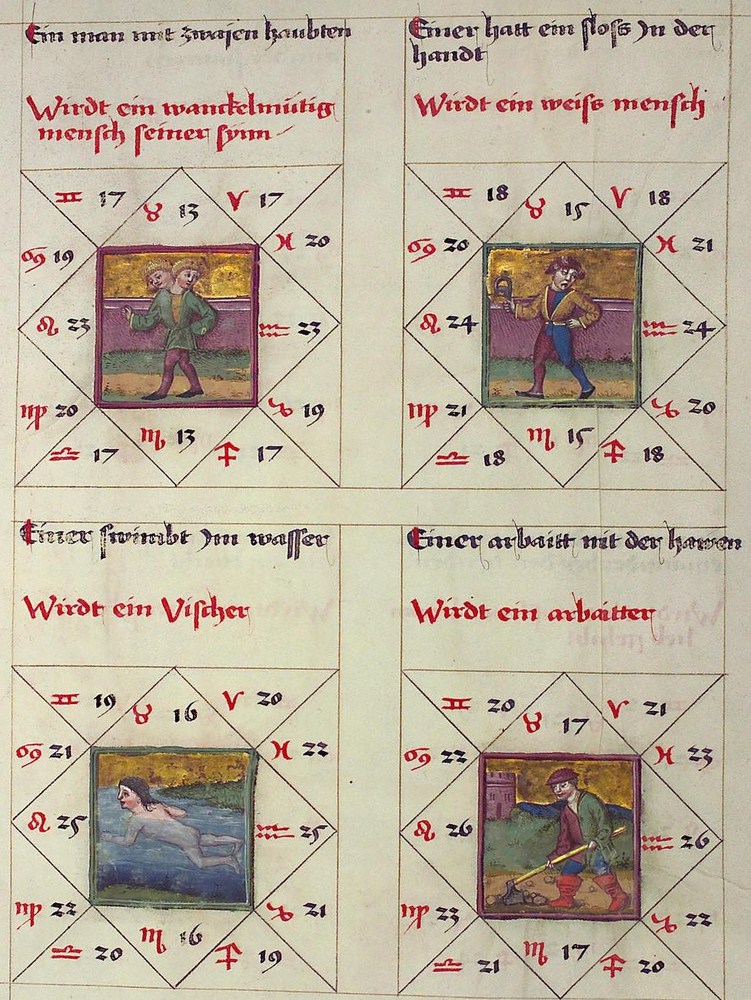 Ein man mit zwaien haubten
Wirdt ein wanckelmütig
mensch seiner synn
♊ 17 ♉ 13 ♈ 17
♋ 19 ♓ 20
♌ 23 ♒ 23
♍ 20 ♑ 19
♎ 17 ♏ 13 ♐ 17
Einer hatt ein slosß Jn der
handt
Wirdt ein weiss mensch
♊ 18 ♉ 15 ♈ 18
♋ 20 ♓ 21
♌ 24 ♒ 24
♍ 21 ♑ 20
♎ 18 ♏ 15 ♐ 18
Einer swimbt Jm wasser
Wirdt ein Vischer
♊ 19 ♉ 16 ♈ 20
♋ 21 ♓ 22
♌ 25 ♒ 25
♍ 22 ♑ 21
♎ 20 ♏ 16 ♐ 19
Einer arbaitt mit der hawen
Wirdt ein arbaitter
♊ 20 ♉ 17 ♈ 21
♋ 22 ♓ 23
♌ 26 ♒ 26
♍ 23 ♑ 22
♎ 21 ♏ 17 ♐ 20